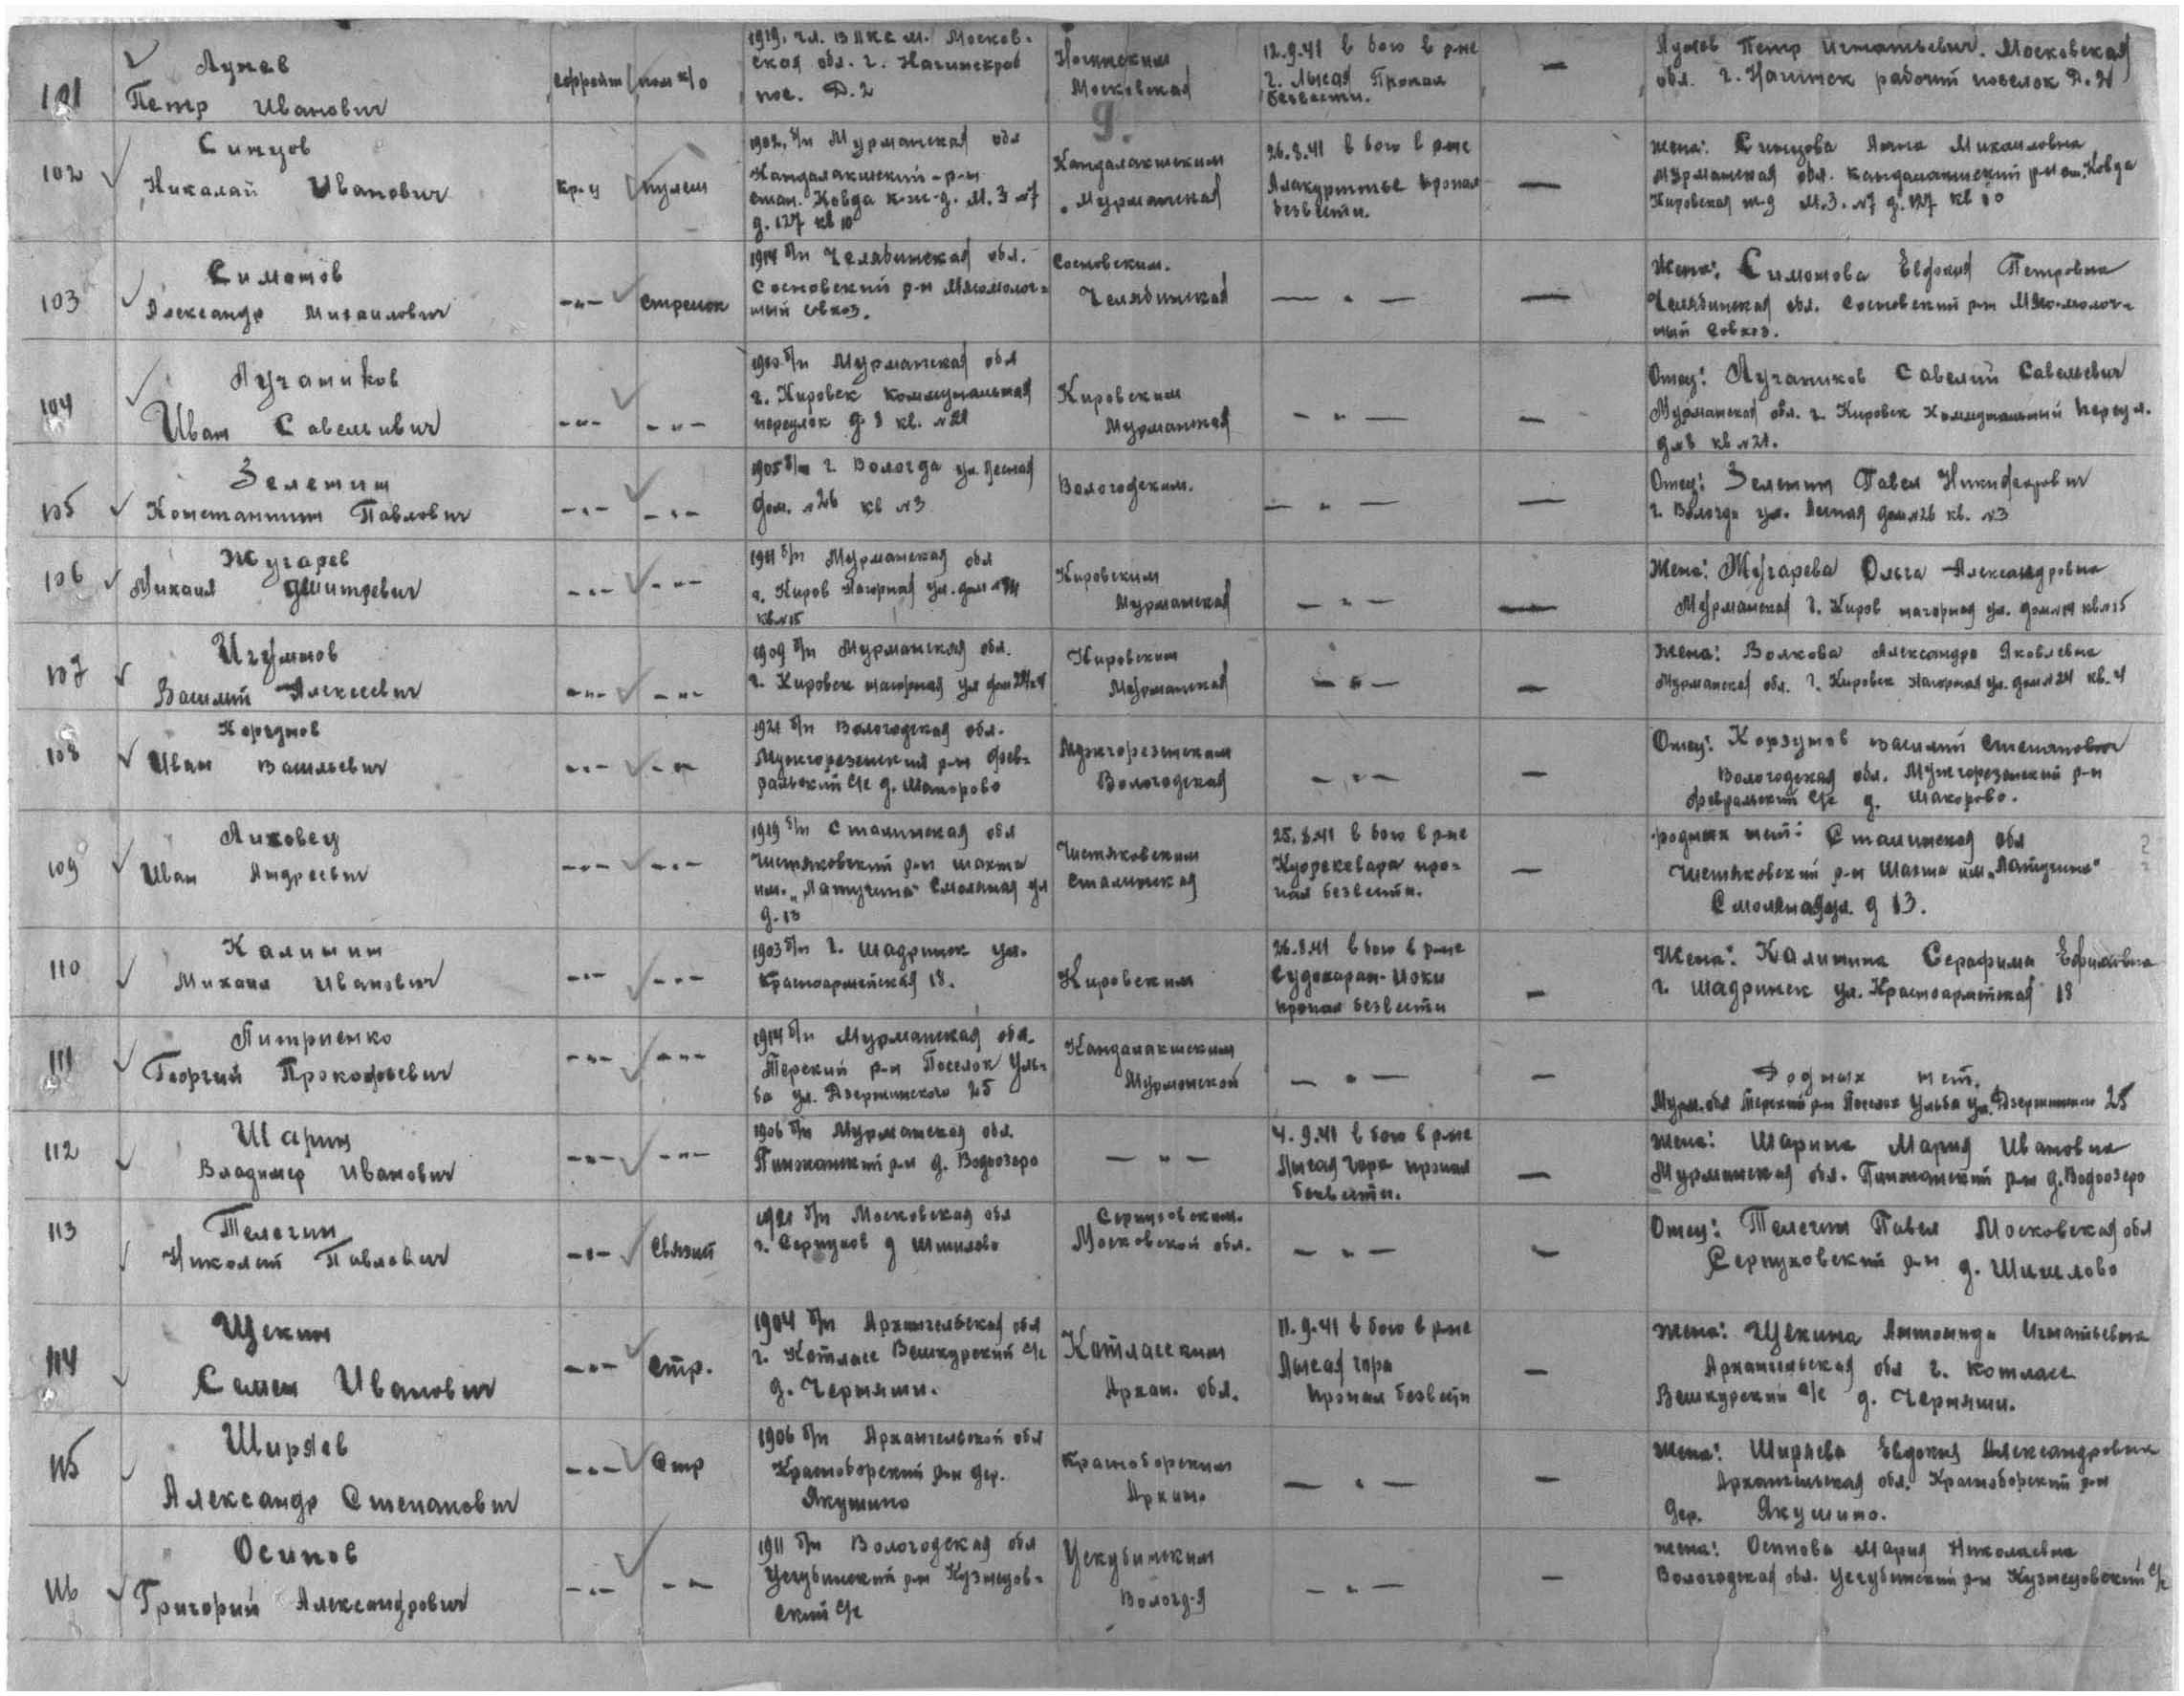 101
Лунев
Петр Иванович
ефрейт
пом к/о
1919. чл. ВЛКСМ. Москов-
ская обл. г. Нагинскраб
пос. Д. 2
Ногинским
Московская
12.9.41 в бою в р-не
г. Лысая Пропал
безвести.
—
Лунев Петр Игнатьевич. Московская
обл. г. Нагинск рабочий поселок Д. №
102
Синцов
Николай Иванович
кр-ц
пулем
1902, б/п Мурманская обл
Кандалакшский р-н
стан. Ковда к-ж-д. М. 3 №7
д. 127 кв 10
Кандалакшским
Мурманская
26.8.41 в бою в р-не
Алакуртье пропал
безвести.
—
Жена: Синцова Анна Михайловна
Мурманская обл. Кандалакшский р-н ст. Ковда
Кировская ж-д М.З. №7 д. 127 кв 10
103
Симонов
Александр Михаилович
—"—
стрелок
1914 б/п Челябинская обл.
Сосновский р-н Мясомолоч-
ный совхоз.
Сосновским.
Челябинская
— " —
—
Жена: Симонова Евдокия Петровна
Челябинская обл. Сосновский р-н Мясомолоч-
ный Совхоз.
104
Лучаников
Иван Савельивич
—"—
—"—
1910 б/п Мурманская обл
г. Кировск Коммунальная
переулок д 8 кв. №21
Кировским
Мурманская
— " —
—
Отец: Лучаников Савелий Савельевич
Мурманская обл. г. Кировск Коммунальный переул.
д №8 кв №21.
105
Зеленин
Константин Павлович
—"—
—"—
1905 б/п г. Вологда ул. Лесная
дом. №26 кв №3
Вологодским.
— " —
—
Отец: Зеленин Павел Никифорович
г. Вологда ул. Лесная дом №26 кв. №3
106
Жугарев
Михаил Дмитревич
—"—
—"—
1911 б/п Мурманская обл
г. Киров Нагорная ул. дом №14
кв №15
Кировским
Мурманская
— " —
—
Жена: Жугарева Ольга Александровна
Мурманская г. Киров нагорная ул. дом №14 кв №15
107
Игумнов
Василий Алексеевич
—"—
—"—
1909 б/п Мурманская обл.
г. Кировск нагорная ул дом 24 к 4
Кировским
Мурманская
— " —
—
Жена: Волкова Александра Яковлевна
Мурманская обл. г. Кировск Нагорная ул. дом №24 кв. 4
108
Корзунов
Иван Васильевич
—"—
—"—
1921 б/п Вологодская обл.
Мужгорезенский р-н Фев-
ральский с/с д. Шаморово
Мужгорезенским
Вологодская
— " —
—
Отец: Корзунов Василий Степанович
Вологодская обл. Мужгорезенский р-н
февральский с/с д. Шакорово.
109
Лиховец
Иван Андреевич
—"—
—"—
1919 б/п Сталинская обл
Чистяковский р-н шахта
им. „Лапучина" Смоляная ул
д. 13
Чистяковским
Сталинская
25.8.41 в бою в р-не
Куореквара про-
пал безвести.
—
родных нет: Сталинская обл
Чистяковский р-н Шахта им. „Лапучина"
Смоляная ул. д 13.
110
Калинин
Михаил Иванович
—"—
—"—
1903 б/п г. Шадринск ул.
Красноармейская 18.
Кировским
26.8.41 в бою в р-не
Судокаран-Иоки
пропал безвести
—
Жена: Калинина Серафима Ефимовна
г. Шадринск ул. Красноармейская 18
111
Питриенко
Георгий Прокофьевич
—"—
—"—
1914 б/п Мурманская обл.
Терский р-н Поселок Ум-
ба ул. Дзержинского 25
Кандалакшским
Мурманской
— " —
—
Родных нет.
Мурм. обл Терский р-н Поселок Ульба ул. Дзержинского 25
112
Шарин
Владимер Иванович
—"—
—"—
1906 б/п Мурманская обл.
д. Водоозеро
— " —
4.9.41 в бою в р-не
Лысая гора пропал
безвести.
—
Жена: Шарина Мария Ивановна
Мурманская обл. р-н д. Водоозеро
113
Телегин
Николай Павлович
—"—
Связной
1921 б/п Московская обл
г. Серпухов д Шишлово
Серпуховским.
Московской обл.
— " —
—
Отец: Телегин Павел Московская обл
Серпуховский р-н д. Шишлово
114
Щекин
Семен Иванович
—"—
стр.
1904 б/п Архангельская обл
г. Котласс Вешкурский с/с
д. Черняши.
Котласским
Архан. обл.
11.9.41 в бою в р-не
Лысая гора
пропал безвести
—
Жена: Щекина Антонида Игнатьевна
Архангельская обл г. Котласс
Вешкурский с/с д. Черняши.
115
Ширяев
Александр Степанович
—"—
Стр
1906 б/п Архангельской обл
Красноборский р-н дер.
Якушино
Красноборским
Архан.
— " —
—
Жена: Ширяева Евдокия Александровна
Архангельская обл. Красноборский р-н
Дер. Якушино.
116
Осипов
Григорий Александрович
—"—
—"—
1911 б/п Вологодская обл
Ускубинский р-н Кузнецов-
ский с/с
Ускубинским
Вологд-я
— " —
—
Жена: Осипова Мария Николаевна
Вологодская обл. Ускубинский р-н Кузнецовский с/с